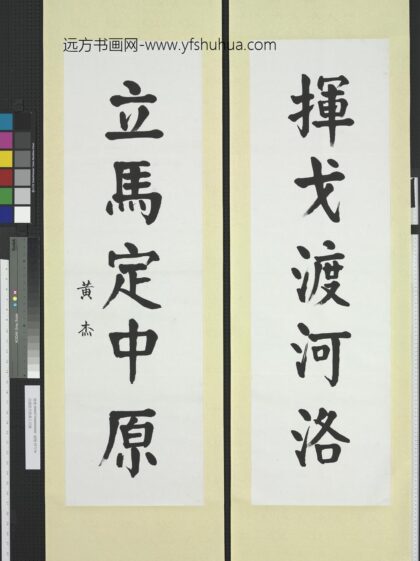 远方书画网-www.yfshuhua.com
揮戈渡河洛
立馬定中原
黄杰